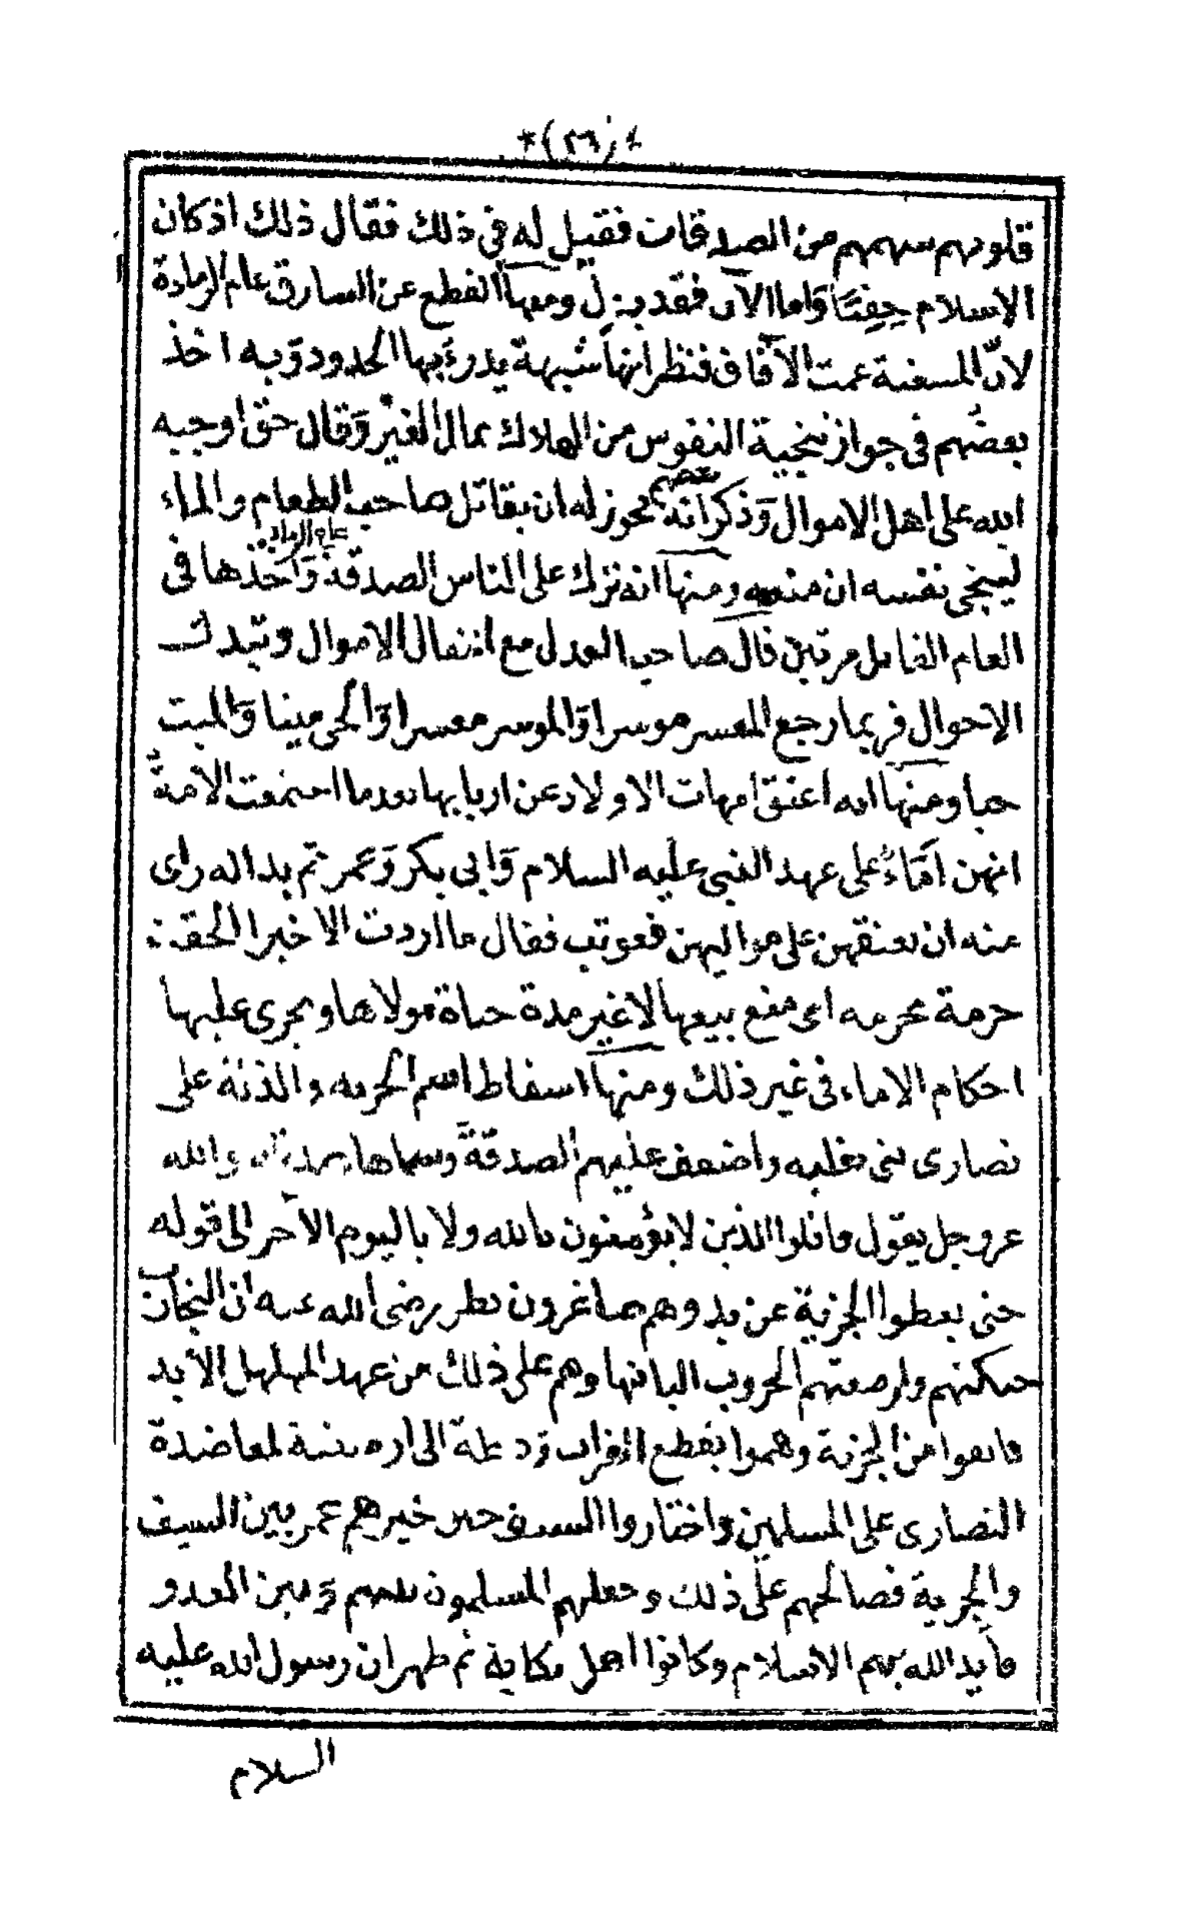 *(٢٦)*
قلوبهم سهمهم من الصدقات فقيل له في ذلك فقال ذلك اذ كان
الاسلام حِقِتًا وَاما الآن فقد بزل ومنها القطع عن السارق عام الرمادة
لانّ المسغبة عمت الآفاق فنظر انها شبهة يدرءَ بها الحدود وَبه اخذ
بعضُهم في جواز تنجية النفوس من الهلاك بمال الغيْر وَقال حق اوجبه
الله على اهل الاموال وَذكر بعضهم انه يجوز له ان يقاتل صاحب الطعام والماء
لينجى نفسه ان منعه ومنها انه ترك على الناس الصدقة عام الرمادة وَاخذها في
العام القابل مرتين قال صاحب العدل مع انتقال الاموال وتبدل
الاحوال فربما رجع المعسر موسرا وَالموسر معسرا وَالحى ميتا وَالميت
حيا ومنها انه اعتق امهات الاولاد عن اربابها بعدما اجتمعت الاُمة
انهن اَمَاءٌ على عهد النبي عليه السلام وَابى بكر وَعمر ثم بدا له راى
منه ان يعتقهن على مواليهن فعوتب فقال ما اردت الا خيرا الحقت
حرمة بحرمه اى منع بيعها لا غير مدة حياة مولاها ويجرى عليها
احكام الاماء في غير ذلك ومنها اسقاط اسم الجزيه والذلة على
نصارى بنى تغلبه واضعف عليهم الصدقة وسماها والله
عز وجل يقول قاتلوا الذين لا يؤمنون بالله ولا باليوم الآخر الى قوله
حتى يعطوا الجزية عن يد وهم صاغرون نظر رضى الله عنه ان التجارب
حنكتهم وارضعتهم الحروب البانها وهم على ذلك من عهد المهلهل الأبد
فانفوا من الجزية وهموا بقطع الفرات الى لمعاضدة
النصارى على المسلمين واختاروا السيف حين خيرهم عمر بين السيف
والجزية فصالحهم على ذلك وجعلهم المسلمون بينهم وَبين العدو
فأيد الله بهم الاسلام وكانوا اهل نكاية ثم ظهر ان رسول الله عليه
السلام